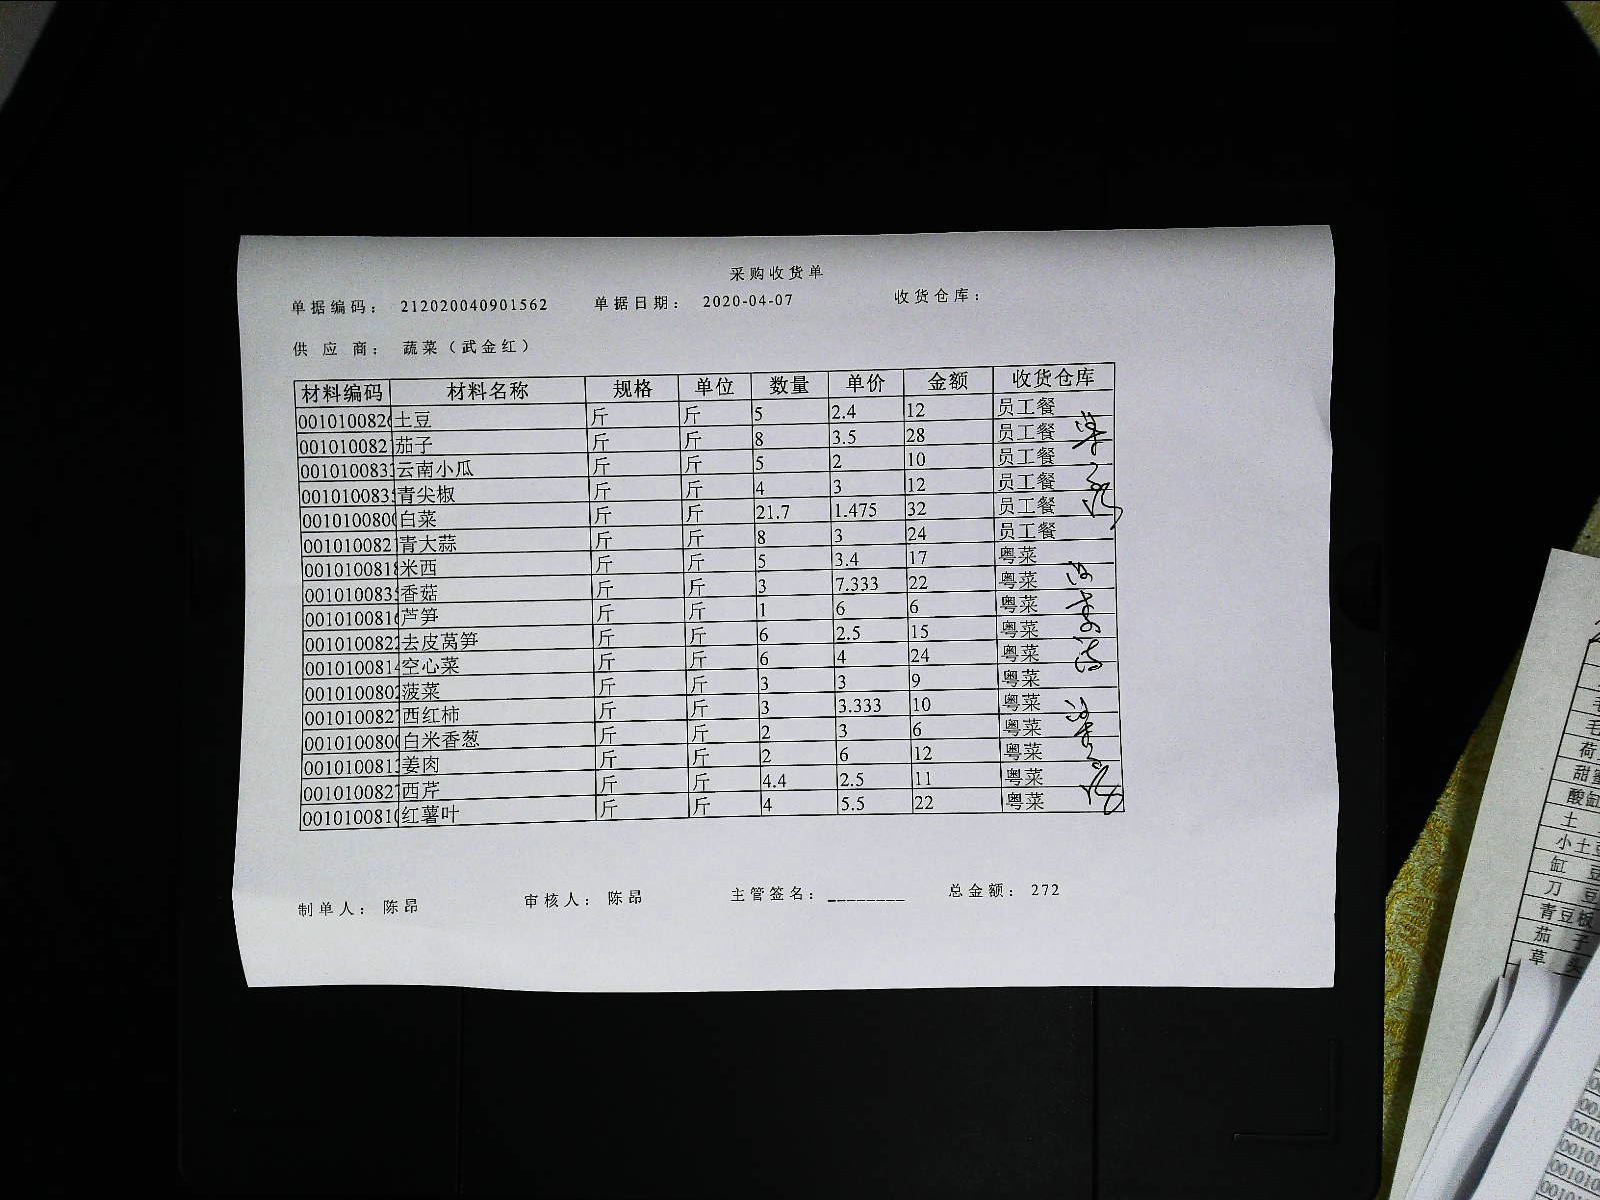 采购收货单
单据编码： 212020040901562 单据日期： 2020-04-07 收货仓库：
供 应 商： 蔬菜（武金红）
材料编码 材料名称 规格 单位 数量 单价 金额 收货仓库
001010082 土豆 斤 斤 5 2.4 12 员工餐
001010082 茄子 斤 斤 8 3.5 28 员工餐
001010083 云南小瓜 斤 斤 5 2 10 员工餐
001010083 青尖椒 斤 斤 4 3 12 员工餐
001010080 白菜 斤 斤 21.7 1.475 32 员工餐
001010082 青大蒜 斤 斤 8 3 24 员工餐
001010081 米西 斤 斤 5 3.4 17 粤菜
001010083 香菇 斤 斤 3 7.333 22 粤菜
001010081 芦笋 斤 斤 1 6 6 粤菜
001010082 去皮莴笋 斤 斤 6 2.5 15 粤菜
001010081 空心菜 斤 斤 6 4 24 粤菜
001010080 菠菜 斤 斤 3 3 9 粤菜
001010082 西红柿 斤 斤 3 3.333 10 粤菜
001010080 白米香葱 斤 斤 2 3 6 粤菜
001010081 姜肉 斤 斤 2 6 12 粤菜
001010082 西芹 斤 斤 4.4 2.5 11 粤菜
001010081 红薯叶 斤 斤 4 5.5 22 粤菜
制单人： 陈昂 审核人： 陈昂 主管签名：________ 总金额： 272
荷
甜蜜
酸缸
土
小土豆
缸 豆
刀 豆
青豆板
茄 子
草 头